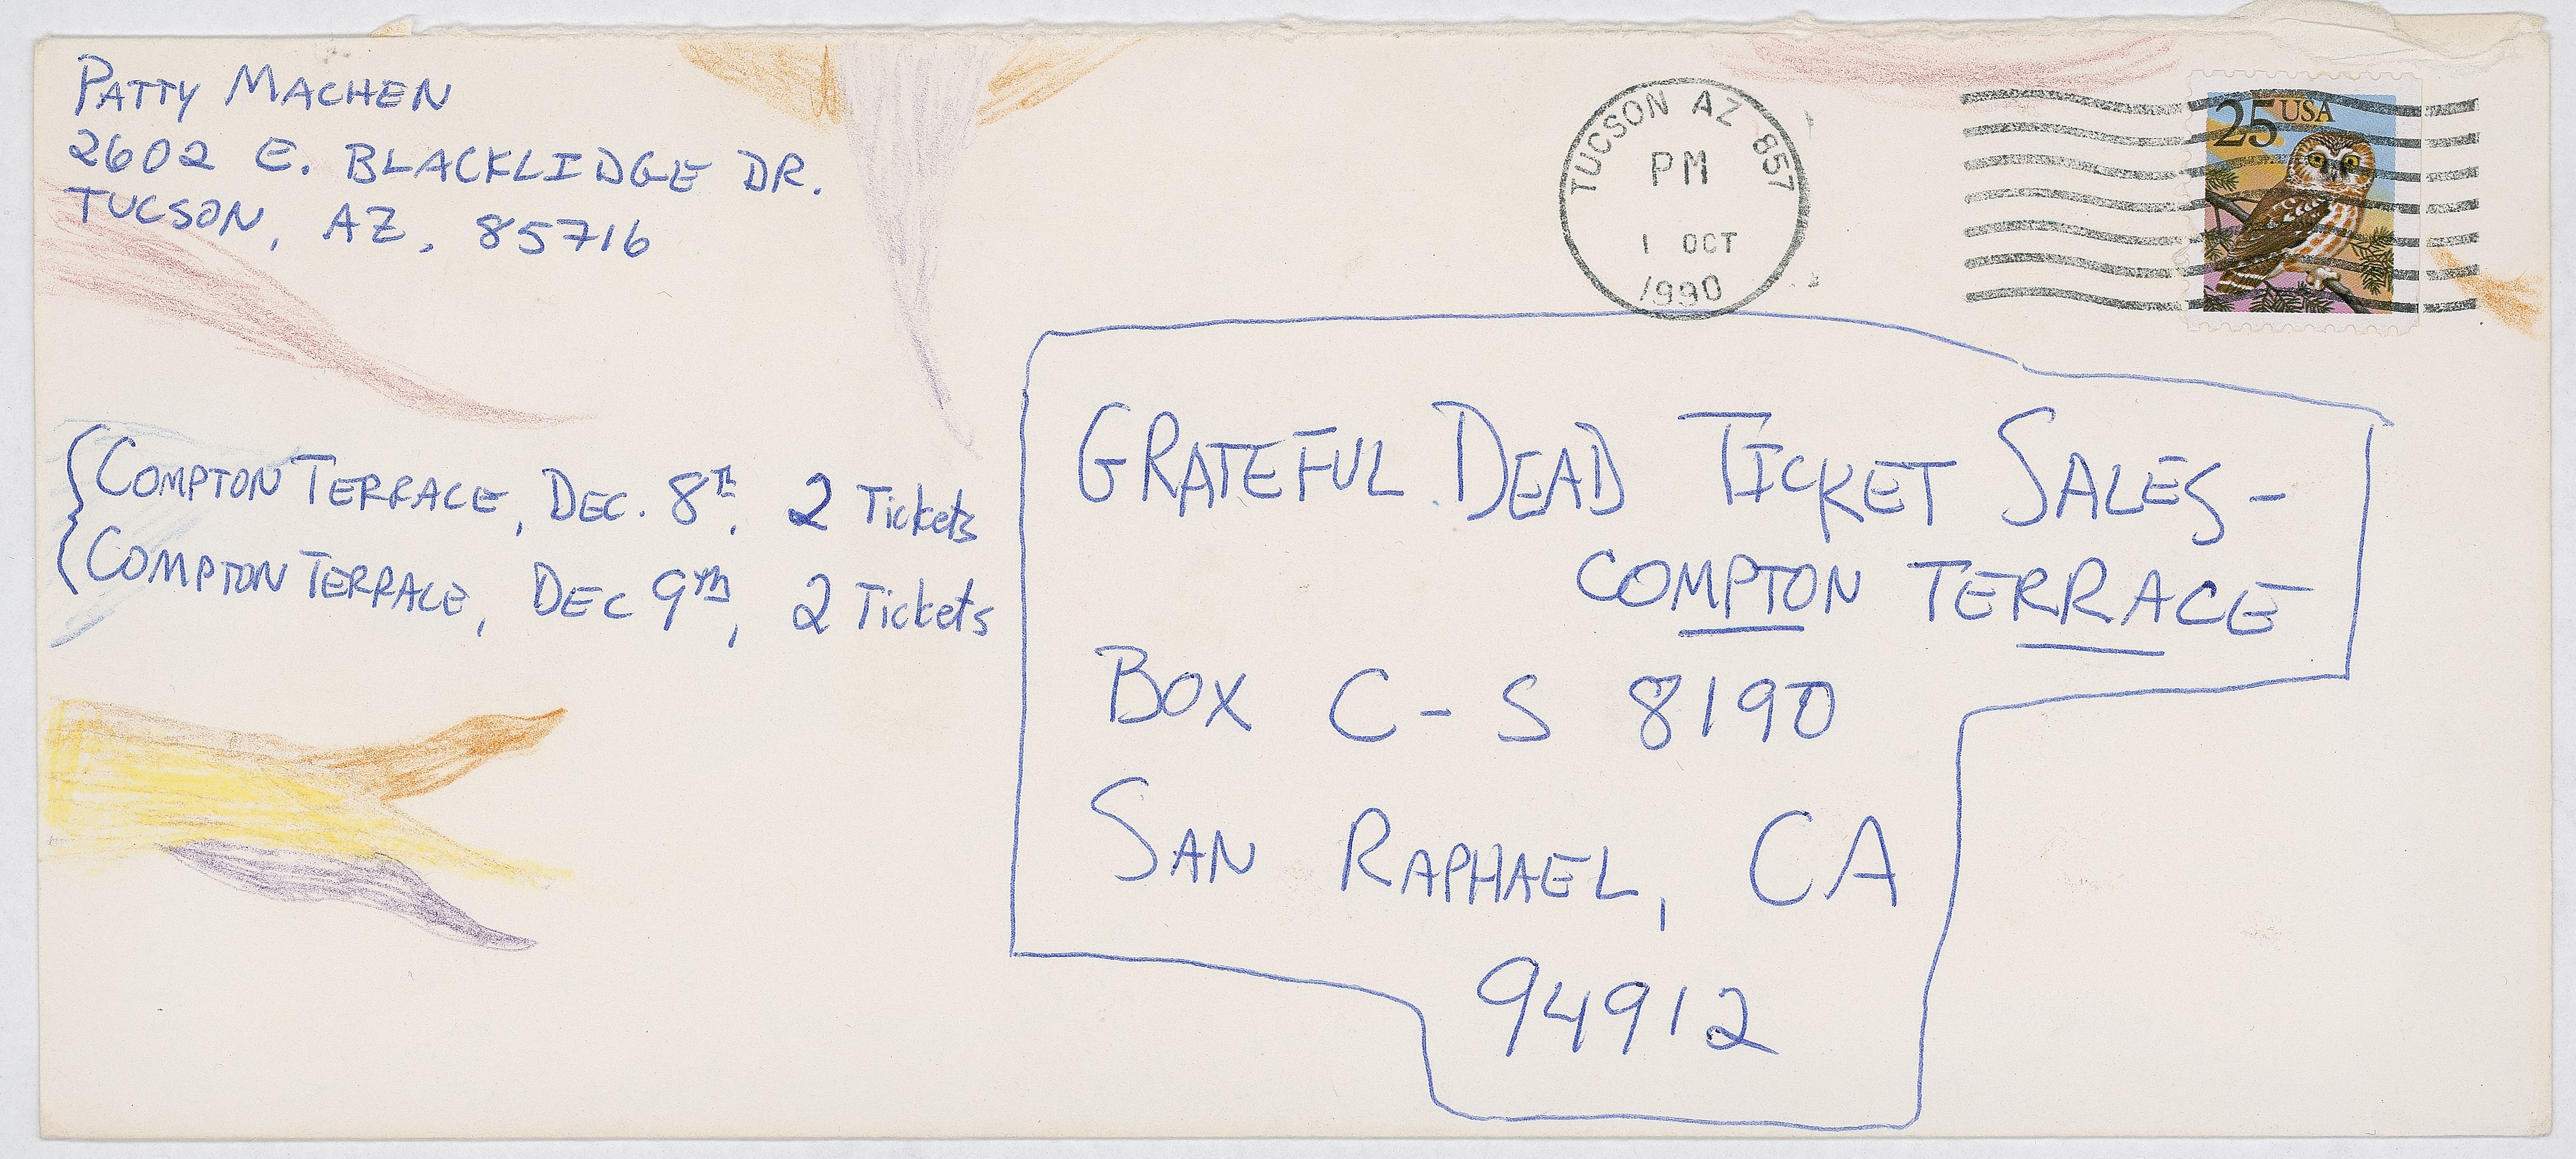 PATTY MACHEN
2602 E. BLACKLIDGE DR.
TUCSON, AZ. 85716
TUCSON AZ 857
PM
1 OCT
1990
25 USA
COMPTON TERRACE, DEC. 8TH, 2 Tickets
COMPTON TERRACE, DEC 9TH, 2 Tickets
GRATEFUL DEAD TICKET SALES-
COMPTON TERRACE
BOX C-S 8190
SAN RAPHAEL, CA
94912